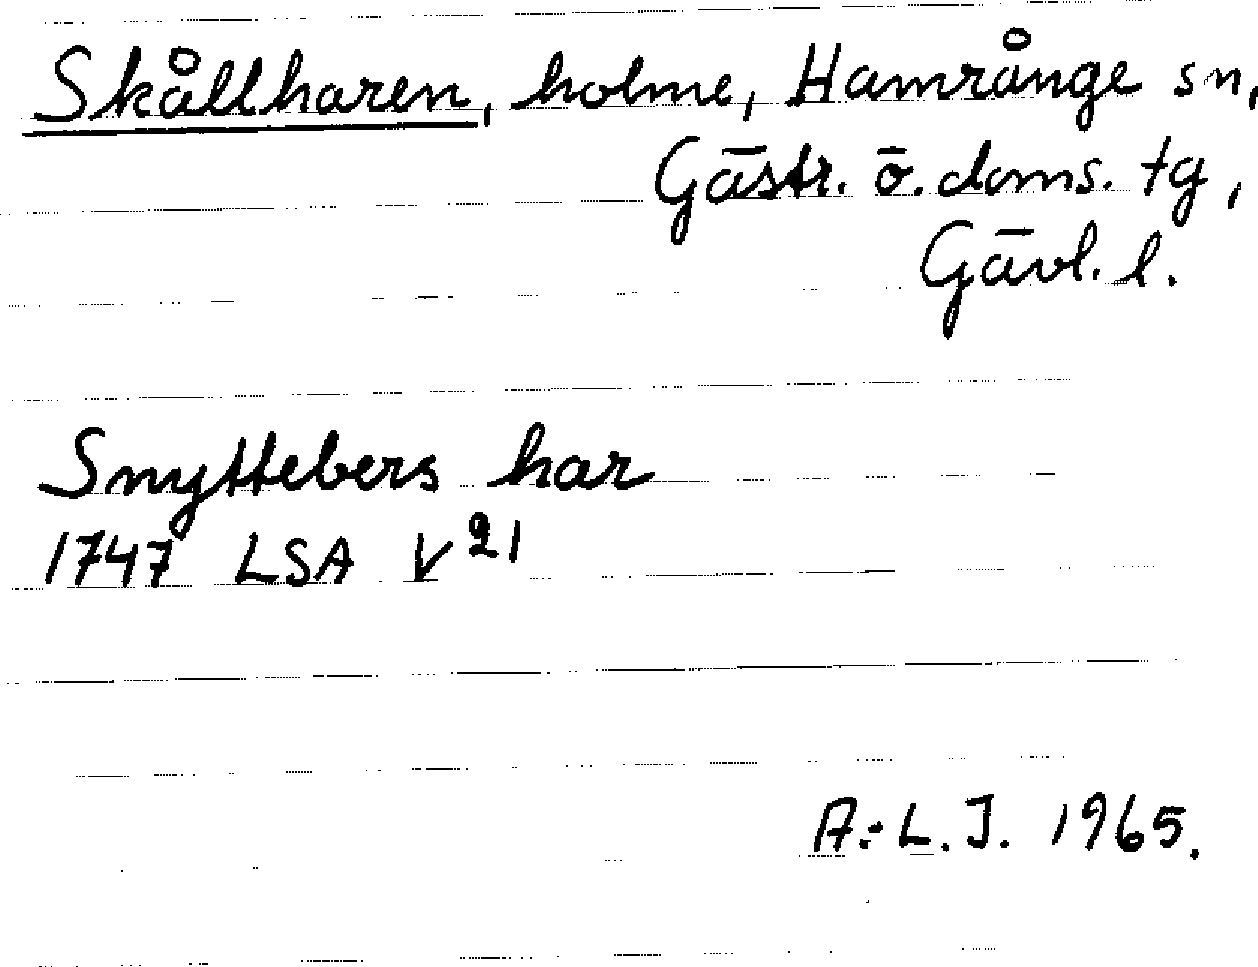 Skållharen, holme, Hamrånge sn,
Gästr. ö. doms. tg,
Gävl. l.
Snyttebers har
1747 LSA V 21
A.-L. J. 1965.